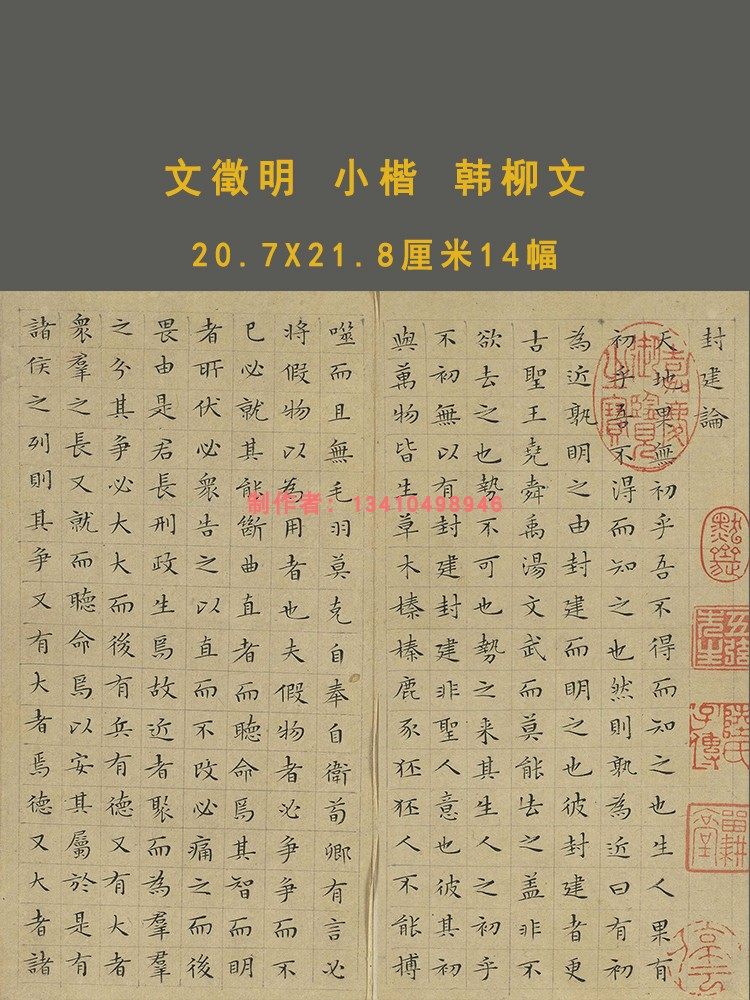 文徵明 小楷 韩柳文
20.7X21.8厘米14幅
封建論
天地果無初乎吾不得而知之也生人果有
初乎吾不得而知之也然則孰為近曰有初
為近孰明之由封建而明之也彼封建者更
古聖王堯舜禹湯文武而莫能去之蓋非不
欲去之也勢不可也勢之来其生人之初乎
不初無以有封建封建非聖人意也彼其初
與萬物皆生草木榛榛鹿豕狉狉人不能搏
噬而且無毛羽莫克自奉自衛荀卿有言必
將假物以為用者也夫假物者必爭爭而不
已必就其能斷曲直者而聽命焉其智而明
者所伏必衆告之以直而不改必痛之而後
畏由是君長刑政生焉故近者聚而為羣羣
之分其爭必大大而後有兵有德又有大者
衆羣之長又就而聽命焉以安其屬於是有
諸侯之列則其爭又有大者焉德又大者諸
嘉慶御覽之寶
制作者：13410498946